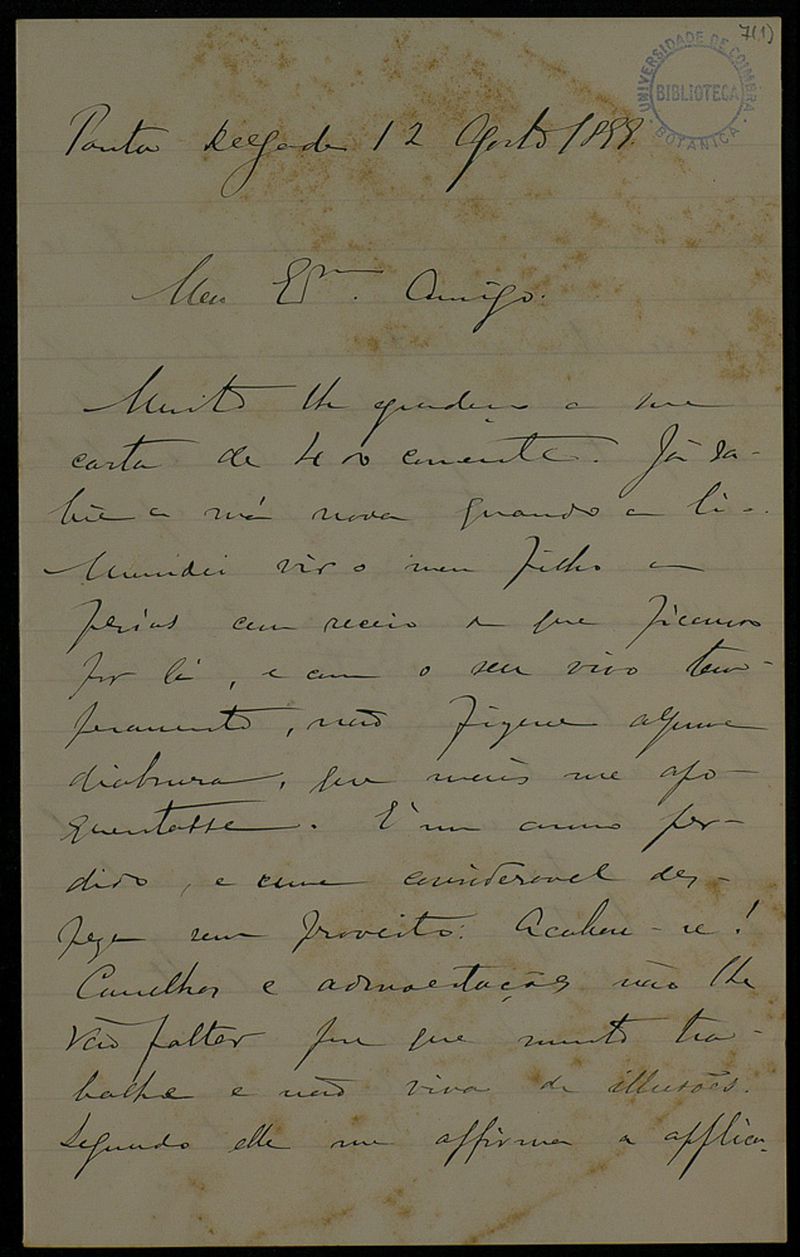 7(1)
UNIVERSIDADE DE COIMBRA
BIBLIOTECA
BOTANICA
Ponta Delgada 12 Agosto 1899.
Meu Exmo. Amigo.
Muito lhe agradeço a sua
carta de 4 do corrente. Já sa-
bia a má nova quando a li.
Mandei vir o meu filho a
ferias com receio de que ficasse
por lá, e com o seu vivo tem-
peramento, não fizesse alguma
diabrura, que mais me apo-
quentasse. É um anno per-
dido, e uma consideravel des-
peza sem proveito. Acabou-se!
Conselhos e admoestações não lhe
vão faltar para que muito tra-
balhe e não viva de illusões.
Segundo elle me affirma a applica-